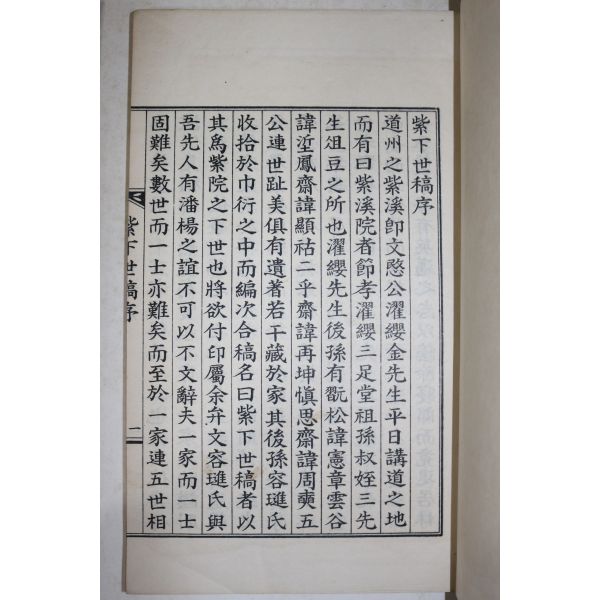 紫下世稿序
道州之紫溪卽文愍公濯纓金先生平日講道之地
而有曰紫溪院者節孝濯纓三足堂祖孫叔姪三先
生俎豆之所也濯纓先生後孫有翫松諱憲章雲谷
諱𡋯鳳齋諱顯祜二乎齋諱再坤愼思齋諱周奭五
公連世趾美俱有遺著若干藏於家其後孫容璡氏
收拾於巾衍之中而編次合稿名曰紫下世稿者以
其爲紫院之下世也將欲付印屬余弁文容璡氏與
吾先人有潘楊之誼不可以不文辭夫一家而一士
固難矣數世而一士亦難矣而至於一家連五世相
紫下世稿序